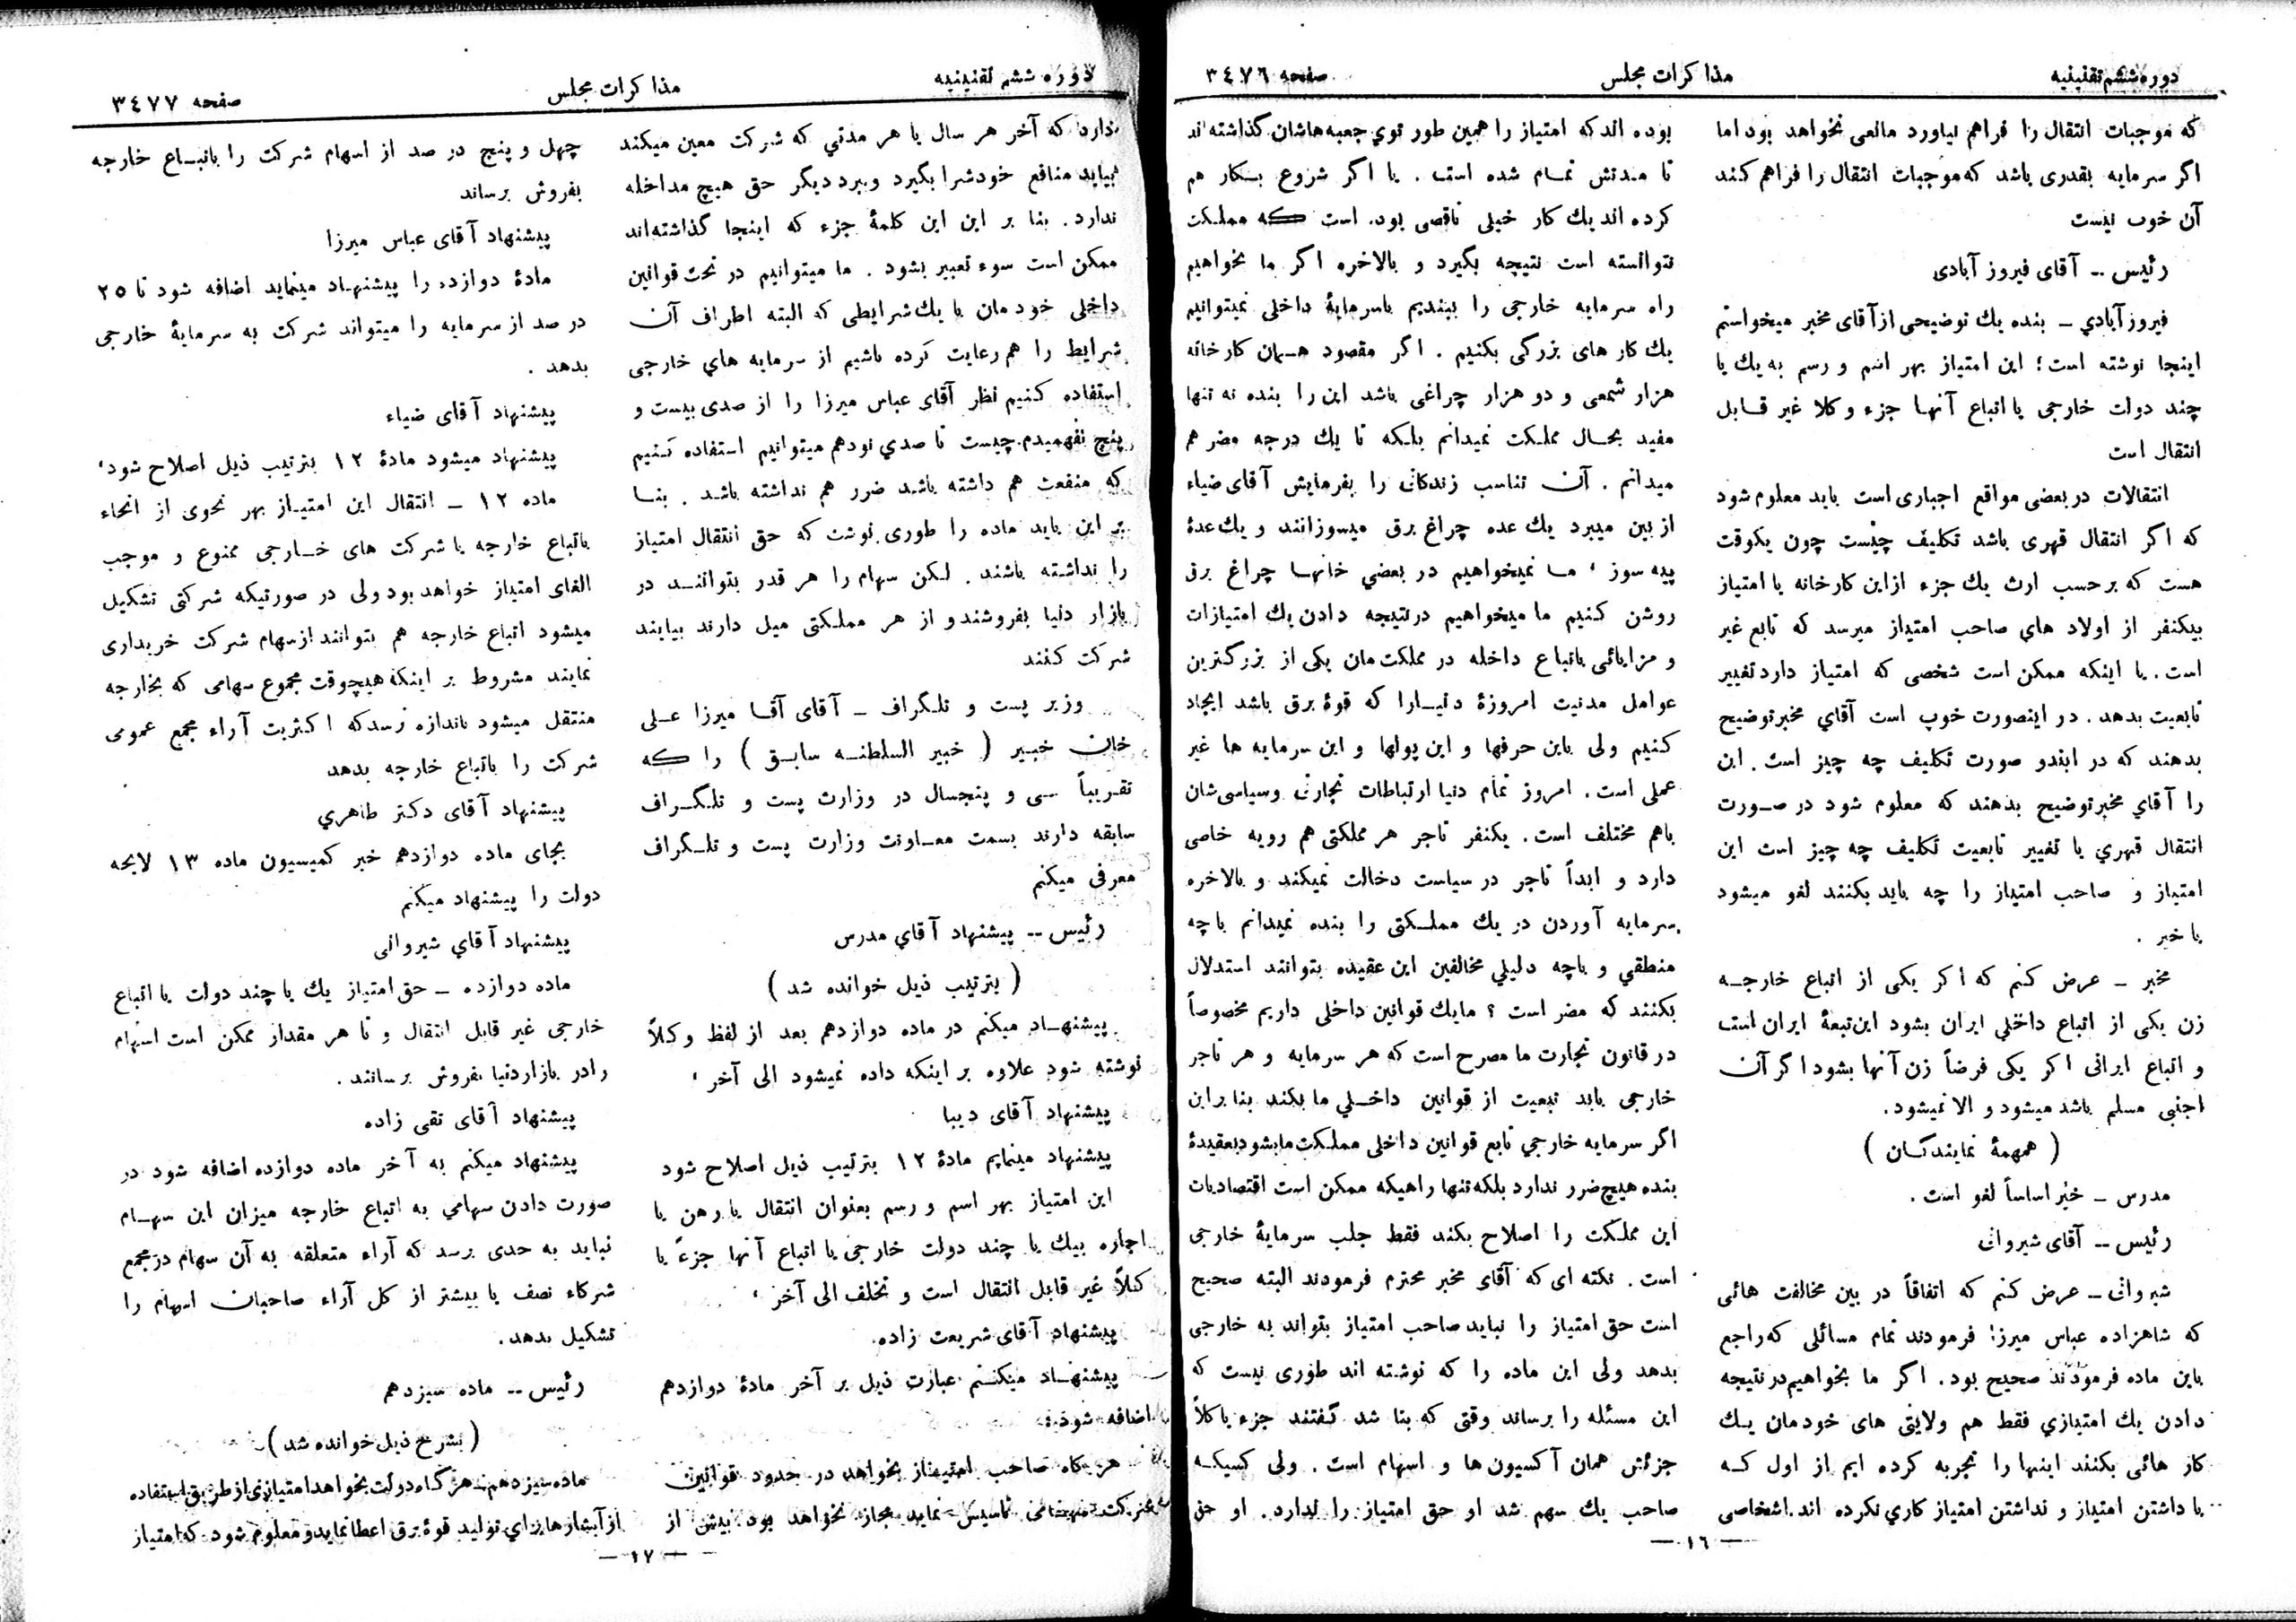 دوره ششم تقنینیه
مذاکرات مجلس
صفحه ۳٤۷٦
که موجبات انتقال را فراهم نیاورد مانعی نخواهد بود اما
اگر سرمایه بقدری باشد که موجبات انتقال را فراهم کند
آن خوب نیست
رئیس -- آقای فیروز آبادی
فیروزآبادي – بنده یك توضیحی از آقای مخبر میخواستم
اینجا نوشته است؛ این امتیاز بهر اسم و رسم به یك یا
چند دولت خارجی یا اتباع آنهـا جزء وکلا غیر قـابل
انتقال است
انتقالات در بعضی مواقع اجباری است باید معلوم شود
که اگر انتقال قهری باشد تکلیف چیست چون یکوقت
هست که برحسب ارث یك جزء ازاین کارخانه یا امتیاز
بیکنفر از اولاد هاي صاحب امتیاز میرسد که تابع غیر
است . یا اینکه ممکن است شخصی که امتیاز دارد تغییر
تابعیت بدهد . در اینصورت خوب است آقاي مخبر توضیح
بدهند که در ایندو صورت تکلیف چه چیز است . این
را آقاي مخبر توضیح بدهند که معلوم شود در صـورت
انتقال قهري یا تغییر تابعیت تکلیف چه چیز است این
امتیاز و صاحب امتیاز را چه باید بکنند لغو میشود
یا خیر .
مخبر – عرض کنم که اگر یکی از اتباع خارجـه
زن یکی از اتباع داخلي ایران بشود این تبعهٔ ایران است
و اتباع ایرانی اگر یکی فرضاً زن آنها بشود اگر آن
اجنبی مسلم باشد میشود و الا نمیشود .
( همهمهٔ نمایندگـان )
مدرس – خیر اساساً لغو است .
رئیس -- آقای شیروانی
شیروانی – عرض کنم که اتفاقاً در بین مخالفت هائی
که شاهزاده عباس میرزا فرمودند تمام مسائلی که راجع
باین ماده فرمودند صحیح بود . اگر ما بخواهیم در نتیجه
دادن یك امتیازي فقط هم ولایتی های خودمان یـك
کار هائی بکنند اینها را تجربه کرده ایم از اول کـه
با داشتن امتیاز و نداشتن امتیاز کاري نکرده اند اشخاصی
بوده اند که امتیاز را همین طور توي جعبه هاشان گذاشته اند
تا مدتش تمـام شده است . یا اگر شروع بـکار هم
کرده اند یك کار خیلی ناقصی بوده است کـه مملکت
نتوانسته است نتیجه بگیرد و بالاخره اگر ما بخواهیم
راه سرمایه خارجی را ببندیم با سرمایهٔ داخلی نمیتوانیم
یك کار های بزرگی بکنیم . اگر مقصود همـان کارخانه
هزار شمعی و دو هزار چراغی باشد این را بنده نه تنها
مفید بحـال مملکت نمیدانم بلکه تا یك درجه مضر هم
میدانم . آن تناسب زندگانی را بفرمایش آقای ضیاء
از بین میبرد یك عده چراغ برق میسوزانند و یك عدهٔ
پیه سوز ، مـا نمیخواهیم در بعضي خانهـا چراغ برق
روشن کنیم ما میخواهیم در نتیجه دادن یك امتیازات
و مزایائی باتباع داخله در مملکت مان یکی از بزرگترین
عوامل مدنیت امروزهٔ دنیـارا که قوهٔ برق باشد ایجاد
کنیم ولی باین حرفها و این پولها و این سرمایه ها غیر
عملی است . امروز تمام دنیا ارتباطات تجارتی وسیاسی شان
باهم مختلف است . یکنفر تاجر هر مملکتی هم رویه خاصی
دارد و ابداً تاجر در سیاست دخالت نمیکند و بالاخره
سرمایه آوردن در یك مملـکتی را بنده نمیدانم با چه
منطقي و باچه دلیلي مخالفین این عقیده بتوانند استدلال
بکنند که مضر است ؟ مایك قوانین داخلی داریم مخصوصاً
در قانون تجارت ما مصرح است که هر سرمایه و هر تاجر
خارجی باید تبعیت از قوانین داخـلي ما بکند بنا براین
اگر سرمایه خارجي تابع قوانین داخلی مملکت ما بشود بعقیدهٔ
بنده هیچ ضرر ندارد بلکه تنها راهیکه ممکن است اقتصادیات
این مملکت را اصلاح بکند فقط جلب سرمایهٔ خارجی
است . نکته ای که آقای مخبر محترم فرمودند البته صحیح
است حق امتیاز را نباید صاحب امتیاز بتواند به خارجی
بدهد ولی این ماده را که نوشته اند طوری نیست که
این مسئله را برساند وقتی که بنا شد گفتند جزء یا کلاً
جزئش همان آکسیون ها و اسهام است . ولی کسیکـه
صاحب یك سهم شد او حق امتیاز را ندارد . او حق
— ۱٦ —
دوره ششم تقنینیه
مذاکرات مجلس
صفحه ۳٤۷۷
دارد که آخر هر سال یا هر مدتي که شرکت معین میکند
بیاید منافع خودشرا بگیرد وببرد دیگر حق هیچ مداخله
ندارد . بنا بر این این کلمهٔ جزء که اینجا گذاشته اند
ممکن است سوء تعبیر بشود . ما میتوانیم در تحت قوانین
داخلی خودمان با یك شرایطی که البته اطراف آن
شرایط را هم رعایت کرده باشیم از سرمایه هاي خارجی
استفاده کنیم نظر آقای عباس میرزا را از صدی بیست و
پنج نفهمیدم چیست تا صدي نود هم میتوانیم استفاده کنیم
که منفعت هم داشته باشد ضرر هم نداشته باشد . بنـا
بر این باید ماده را طوری نوشت که حق انتقال امتیاز
را نداشته باشند . لکن سهام را هر قدر بتواننـد در
بازار دنیا بفروشند و از هر مملکتی میل دارند بیایند
شرکت کنند
وزیر پست و تلگراف – آقای آقا میرزا علـی
خان خبـیر ( خبیر السلطنـه سابـق ) را کـه
تقریباً سـی و پنجسال در وزارت پست و تلگـراف
سابقه دارند بسمت معـاونت وزارت پست و تلـگراف
معرفی میکنم
رئیس -- پیشنهاد آقاي مدرس
( بترتیب ذیل خوانده شد )
پیشنهـاد میکنم در ماده دوازدهم بعد از لفظ وکلاً
نوشته شود علاوه بر اینکه داده نمیشود الی آخر ،
پیشنهاد آقای دیبا
پیشنهاد مینمایم مادهٔ ۱۲ بترتیب ذیل اصلاح شود
این امتیاز بهر اسم و رسم بعنوان انتقال یا رهن یا
اجاره بیك یا چند دولت خارجی یا اتباع آنها جزءً یا
کلاً غیر قابل انتقال است و تخلف الی آخر ،
پیشنهاد آقای شریعت زاده .
پیشنهـاد میکنـم عبارت ذیل بر آخر مادهٔ دوازدهم
اضافه شود :
هر گاه صاحب امتیـاز بخواهد در حدود قوانین
شرکت سهامی تأسیس نماید مجاز نخواهد بود بیش از
چهل و پنج در صد از اسهام شرکت را باتبـاع خارجه
بفروش برساند
پیشنهاد آقای عباس میرزا
مادهٔ دوازده را پیشنهـاد مینماید اضافه شود تا ۲۵
در صد از سرمایه را میتواند شرکت به سرمایهٔ خارجی
بدهد .
پیشنهاد آقای ضیاء
پیشنهاد میشود مادهٔ ۱۲ بترتیب ذیل اصلاح شود ،
ماده ۱۲ – انتقال این امتیـاز بهر نحوی از انحاء
باتباع خارجه یا شرکت های خـارجی ممنوع و موجب
الغای امتیاز خواهد بود ولی در صورتیکه شرکتی تشکیل
میشود اتباع خارجه هم بتوانند از سهام شرکت خریداری
نمایند مشروط بر اینکه هیچوقت مجموع سهامی که بخارجه
منتقل میشود باندازه نرسد که اکثریت آراء مجمع عمومی
شرکت را باتباع خارجه بدهد
پیشنهاد آقای دکتر طاهري
بجای ماده دوازدهم خبر کمیسیون ماده ۱۳ لایحه
دولت را پیشنهاد میکنم
پیشنهاد آقاي شیروانی
ماده دوازده – حق امتیاز یك یا چند دولت یا اتباع
خارجی غیر قابل انتقال و تا هر مقدار ممکن است اسهام
را در بازار دنیا بفروش برسانند .
پیشنهاد آقای تقی زاده
پیشنهاد میکنم به آخر ماده دوازده اضافه شود در
صورت دادن سهامي به اتباع خارجه میزان این سهـام
نباید به حدی برسد که آراء متعلقه به آن سهام در مجمع
شرکاء نصف یا بیشتر از کل آراء صاحبان اسهام را
تشکیل بدهد .
رئیس -- ماده سیزدهم
( بشرح ذیل خوانده شد )
ماده سیزدهم – هرگاه دولت بخواهد امتیازی از طریق استفاده
از آبشارها برای تولید قوهٔ برق اعطا نماید و معلوم شود که امتیاز
— ۱۷ —